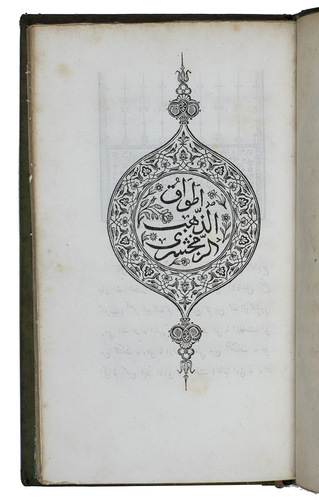 اطواق
الذهب
للزمخشرى